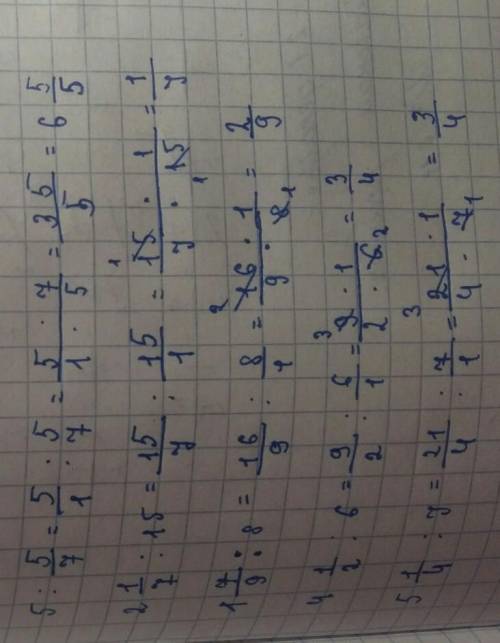 5 : 5/7 = 5/1 : 5/7 = (5 · 7)/(1 · 5) = 35/5 = 6 5/5
2 1/7 : 15 = 15/7 : 15/1 = (15 · 1)/(7 · 15) = 1/7
1 7/9 : 8 = 16/9 : 8/1 = (16 · 1)/(9 · 8) = 2/9
4 1/2 : 6 = 9/2 : 6/1 = (9 · 1)/(2 · 6) = 3/4
5 1/4 : 7 = 21/4 : 7/1 = (21 · 1)/(4 · 7) = 3/4